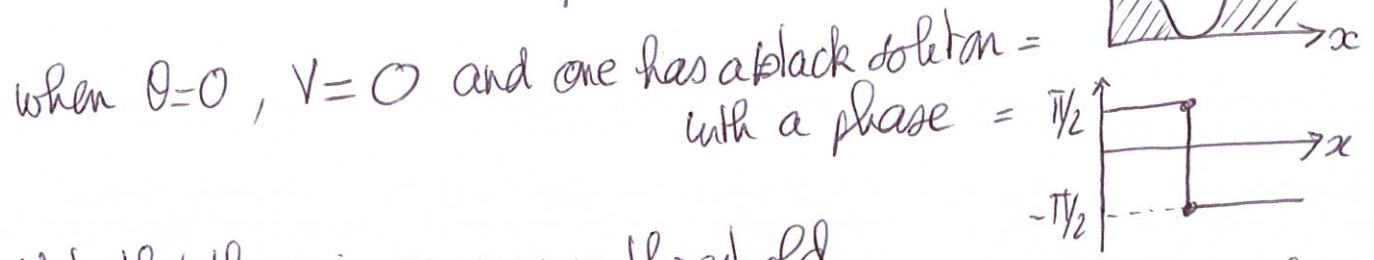 when θ=0, V=0 and one has a black soliton =
x
with a phase =
π/2
x
-π/2